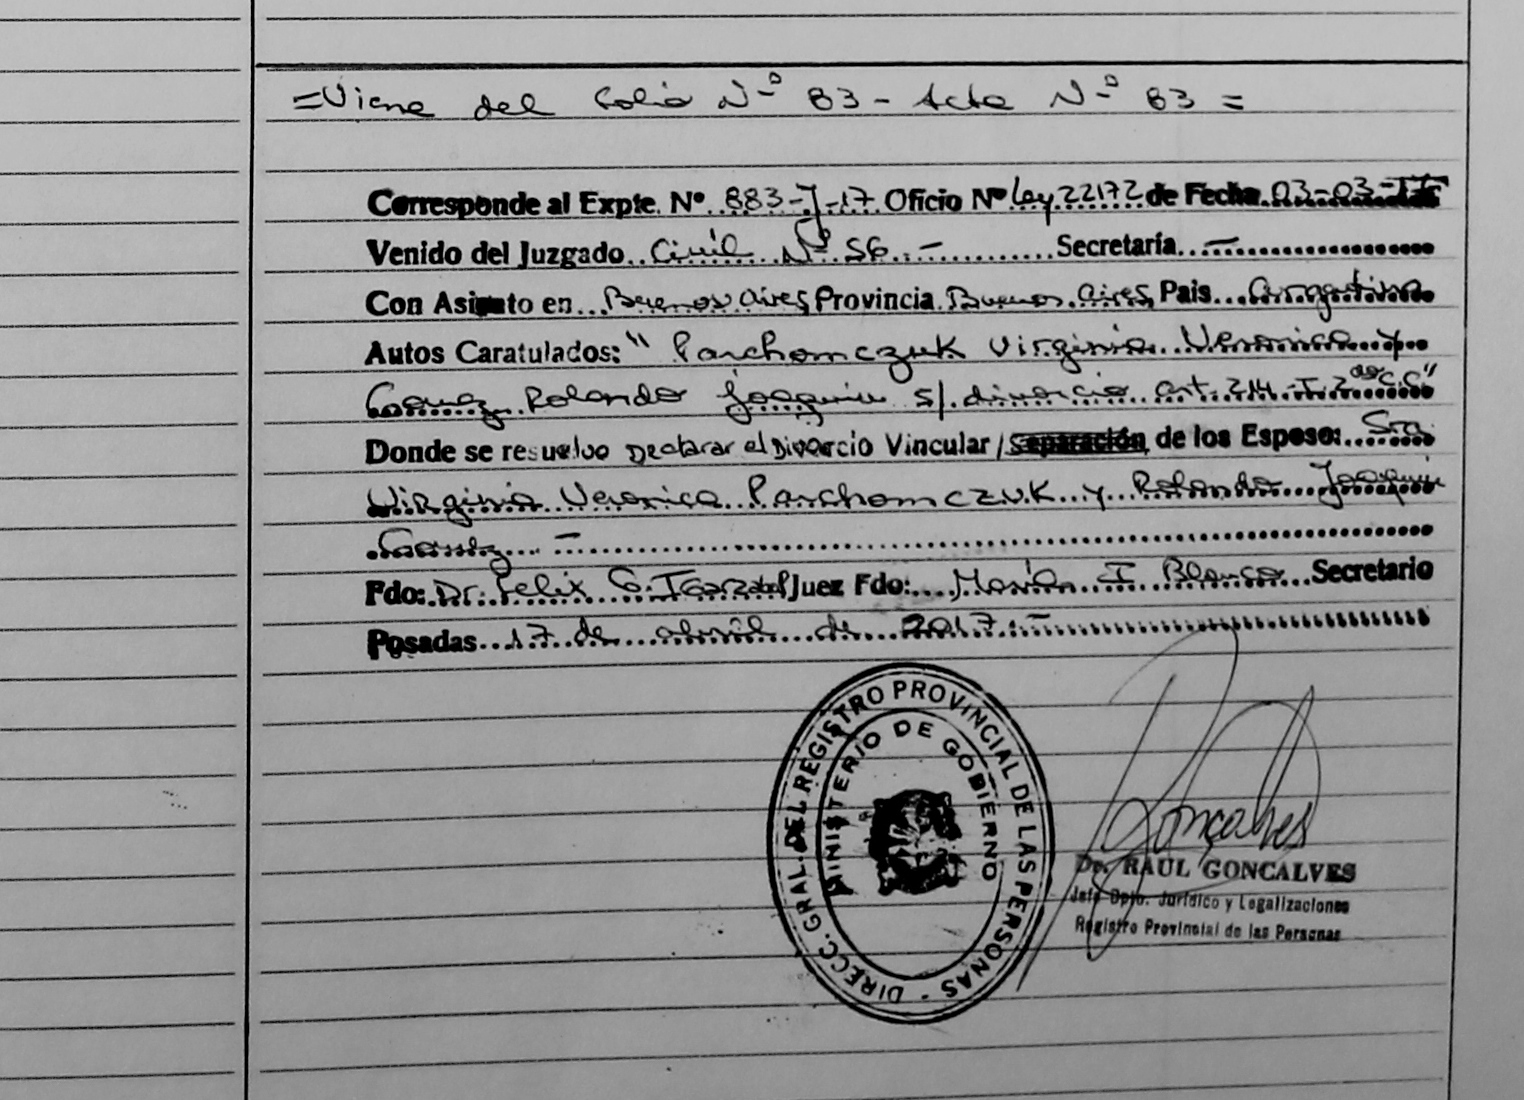 =Viene del Folio Nº 83 - Acta Nº 83 =
Corresponde al Expte. Nº 883-J-17 Oficio Nº Ley 22172 de Fecha 03-03-17
Venido del Juzgado Civil Nº 56.- Secretaría -
Con Asiento en Buenos Aires Provincia Buenos Aires País Argentina
Autos Caratulados: "Parchomczuk Virginia Veronica y
Gomez Rolando Joaquin s/. divorcio art. 214 - I. 2do C.C"
Donde se resuelve Declarar el Divorcio Vincular / Separación de los Esposo: Sra
Virginia Veronica Parchomczuk y Rolando Joaquin
Gomez -
Fdo: Dr. Felix G. Juez Fdo: María I Blanco Secretario
Posadas 17 de abril de 2017.-
DIRECC. GRAL. DEL REGISTRO PROVINCIAL DE LAS PERSONAS -
MINISTERIO DE GOBIERNO
Goncalves
Dr. RAUL GONCALVES
Jefe Dpto. Jurídico y Legalizaciones
Registro Provincial de las Personas